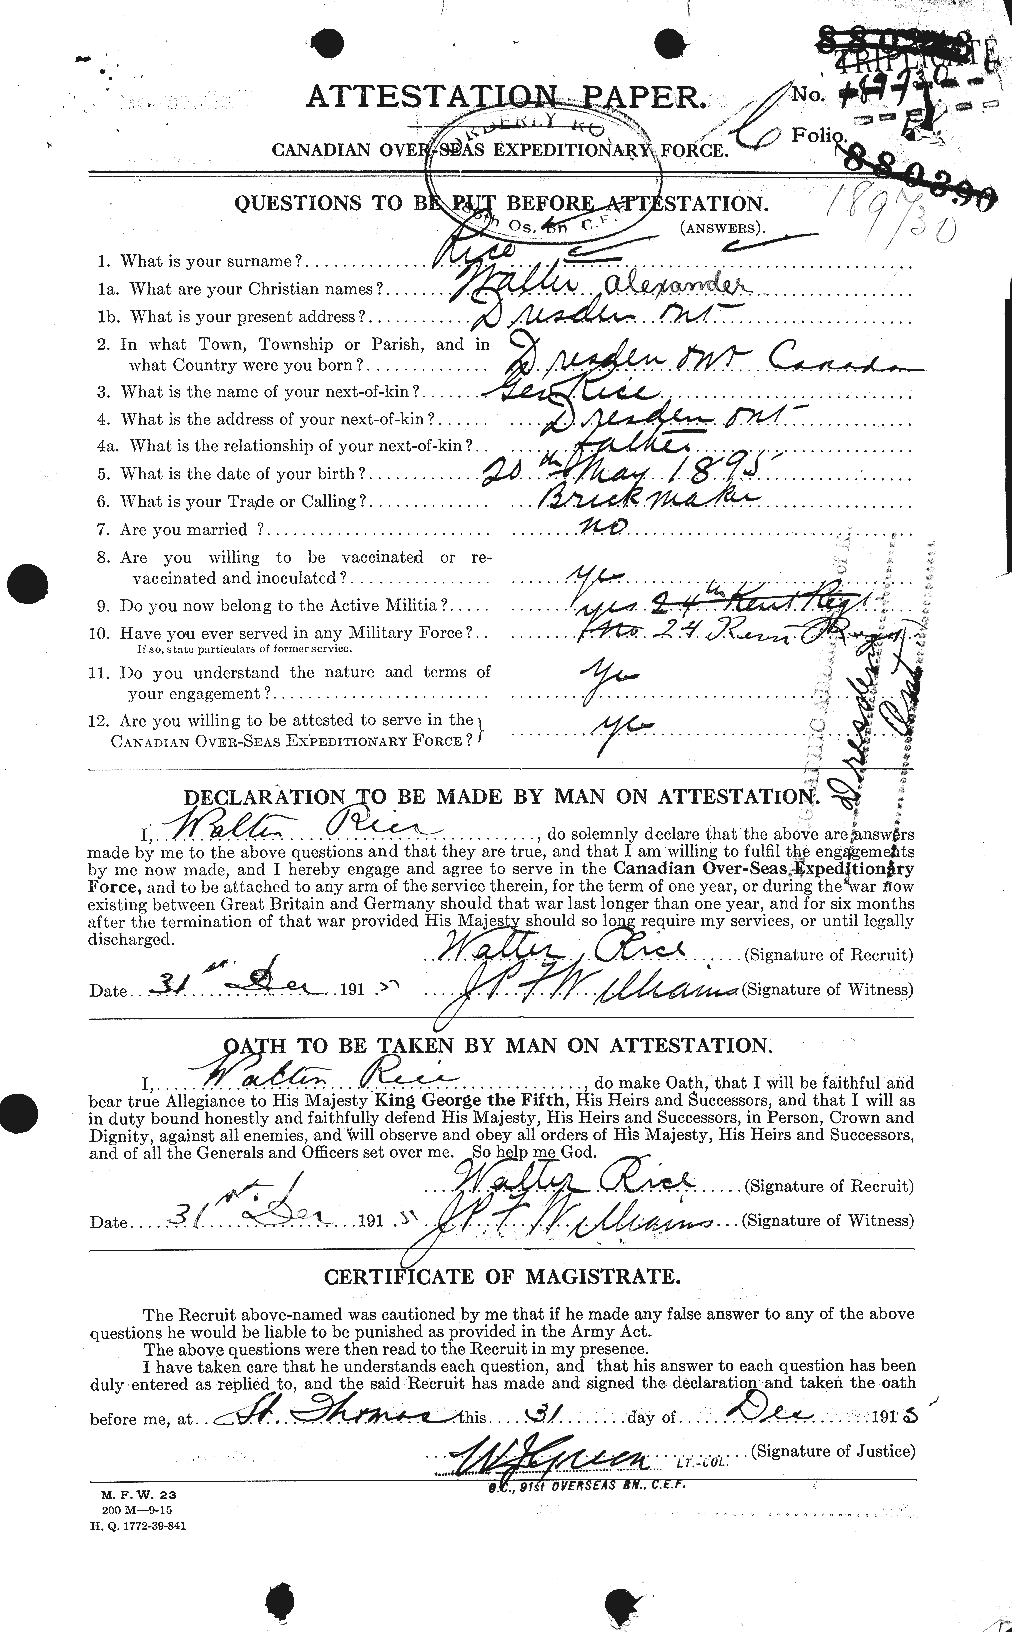 TRIPLICATE
ATTESTATION PAPER.
No. 189730
Folio.
CANADIAN OVER-SEAS EXPEDITIONARY FORCE.
880390
189730
QUESTIONS TO BE PUT BEFORE ATTESTATION.
(ANSWERS).
1. What is your surname? Rice
1a. What are your Christian names? Walter Alexander
1b. What is your present address? Dresden Ont
2. In what Town, Township or Parish, and in
what Country were you born? Dresden Ont Canada
3. What is the name of your next-of-kin? Geo Rice
4. What is the address of your next-of-kin? Dresden Ont
4a. What is the relationship of your next-of-kin? father
5. What is the date of your birth? 20th May 1895
6. What is your Trade or Calling? Brickmaker
7. Are you married? no
8. Are you willing to be vaccinated or re-
vaccinated and inoculated? yes
9. Do you now belong to the Active Militia? yes 24th Kent Regt
10. Have you ever served in any Military Force? No. 24 Kent Regt
If so, state particulars of former service.
11. Do you understand the nature and terms of
your engagement? Yes
12. Are you willing to be attested to serve in the
CANADIAN OVER-SEAS EXPEDITIONARY FORCE? yes
Dresden
Ont
DECLARATION TO BE MADE BY MAN ON ATTESTATION.
I, Walter Rice, do solemnly declare that the above are answers
made by me to the above questions and that they are true, and that I am willing to fulfil the engagements
by me now made, and I hereby engage and agree to serve in the Canadian Over-Seas Expeditionary
Force, and to be attached to any arm of the service therein, for the term of one year, or during the war now
existing between Great Britain and Germany should that war last longer than one year, and for six months
after the termination of that war provided His Majesty should so long require my services, or until legally
discharged.
Walter Rice (Signature of Recruit)
Date 31st Dec 1915 J P F Williams (Signature of Witness)
OATH TO BE TAKEN BY MAN ON ATTESTATION.
I, Walter Rice, do make Oath, that I will be faithful and
bear true Allegiance to His Majesty King George the Fifth, His Heirs and Successors, and that I will as
in duty bound honestly and faithfully defend His Majesty, His Heirs and Successors, in Person, Crown and
Dignity, against all enemies, and will observe and obey all orders of His Majesty, His Heirs and Successors,
and of all the Generals and Officers set over me. So help me God.
Walter Rice (Signature of Recruit)
Date 31st Dec 1915 J P F Williams (Signature of Witness)
CERTIFICATE OF MAGISTRATE.
The Recruit above-named was cautioned by me that if he made any false answer to any of the above
questions he would be liable to be punished as provided in the Army Act.
The above questions were then read to the Recruit in my presence.
I have taken care that he understands each question, and that his answer to each question has been
duly entered as replied to, and the said Recruit has made and signed the declaration and taken the oath
before me, at St. Thomas this 31 day of Dec 1915
W J Green LT.-COL. (Signature of Justice)
O.C., 91st OVERSEAS BN., C.E.F.
M. F. W. 23
200 M—9-15
H. Q. 1772-39-841